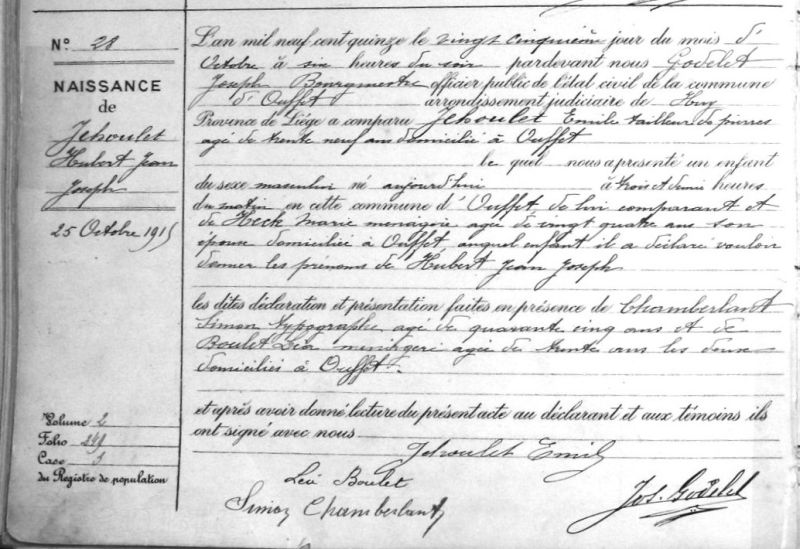 N° 28
NAISSANCE
de
Jehoulet
Hubert Jean
Joseph
25 Octobre 1915
Volume 2
Folio 249
Case 1
du Registre de population
L'an mil neuf cent quinze le vingt cinquième jour du mois d'
Octobre à six heures du soir pardevant nous Godelet
Joseph Bourgmestre officier public de l'état civil de la commune
d'Ouffet arrondissement judiciaire de Huy
Province de Liége a comparu Jehoulet Emile tailleur de pierres
agé de trente neuf ans domicilié à Ouffet
le quel nous a présenté un enfant
du sexe masculin né aujourd'hui à trois et demie heures
du matin en cette commune d'Ouffet de lui comparant et
de Heck Marie menagère agée de vingt quatre ans son
épouse domiciliée à Ouffet, auquel enfant il a déclaré vouloir
donner les prénoms de Hubert Jean Joseph
les dites déclaration et présentation faites en présence de Chamberlant
Simon typographe agé de quarante cinq ans et de
Boulet Léa menagere agée de trente ans les deux
domiciliés à Ouffet.
et après avoir donné lecture du présent acte au déclarant et aux témoins ils
ont signé avec nous
Jehoulet Emile
Léa Boulet
Simon Chamberlant
Jos. Godelet